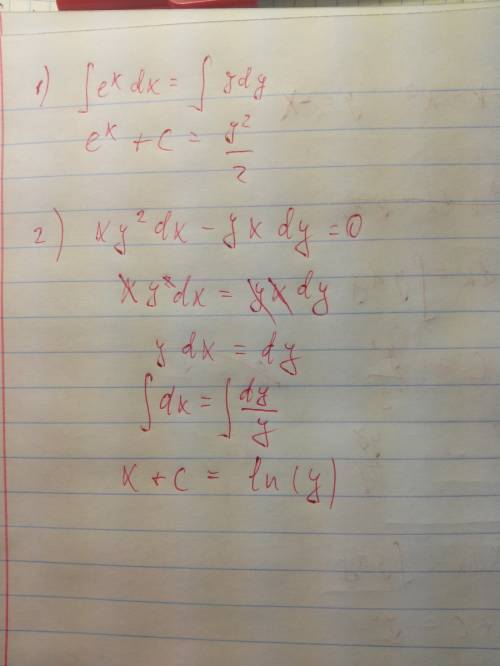 1) ∫eˣdx = ∫ydy
eˣ + c = y²/2
2) xy²dx - yxdy = 0
xy²dx = yxdy
ydx = dy
∫dx = ∫dy/y
x + c = ln(y)